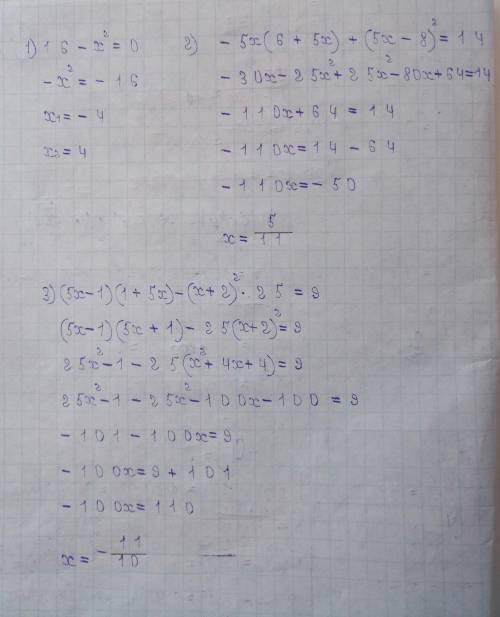 1) 16 - x² = 0
-x² = -16
x₁ = -4
x₂ = 4
2) -5x(6 + 5x) + (5x - 8)² = 14
-30x - 25x² + 25x² - 80x + 64 = 14
-110x + 64 = 14
-110x = 14 - 64
-110x = -50
x = 5/11
3) (5x-1)(1+5x) - (x+2)² · 25 = 9
(5x-1)(5x+1) - 25(x+2)² = 9
25x² - 1 - 25(x² + 4x + 4) = 9
25x² - 1 - 25x² - 100x - 100 = 9
-101 - 100x = 9
-100x = 9 + 101
-100x = 110
x = -11/10